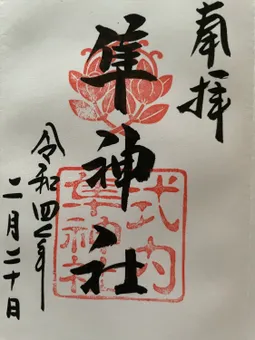 奉拝
隼神社
式内
隼神社
令和四年
二月二十日